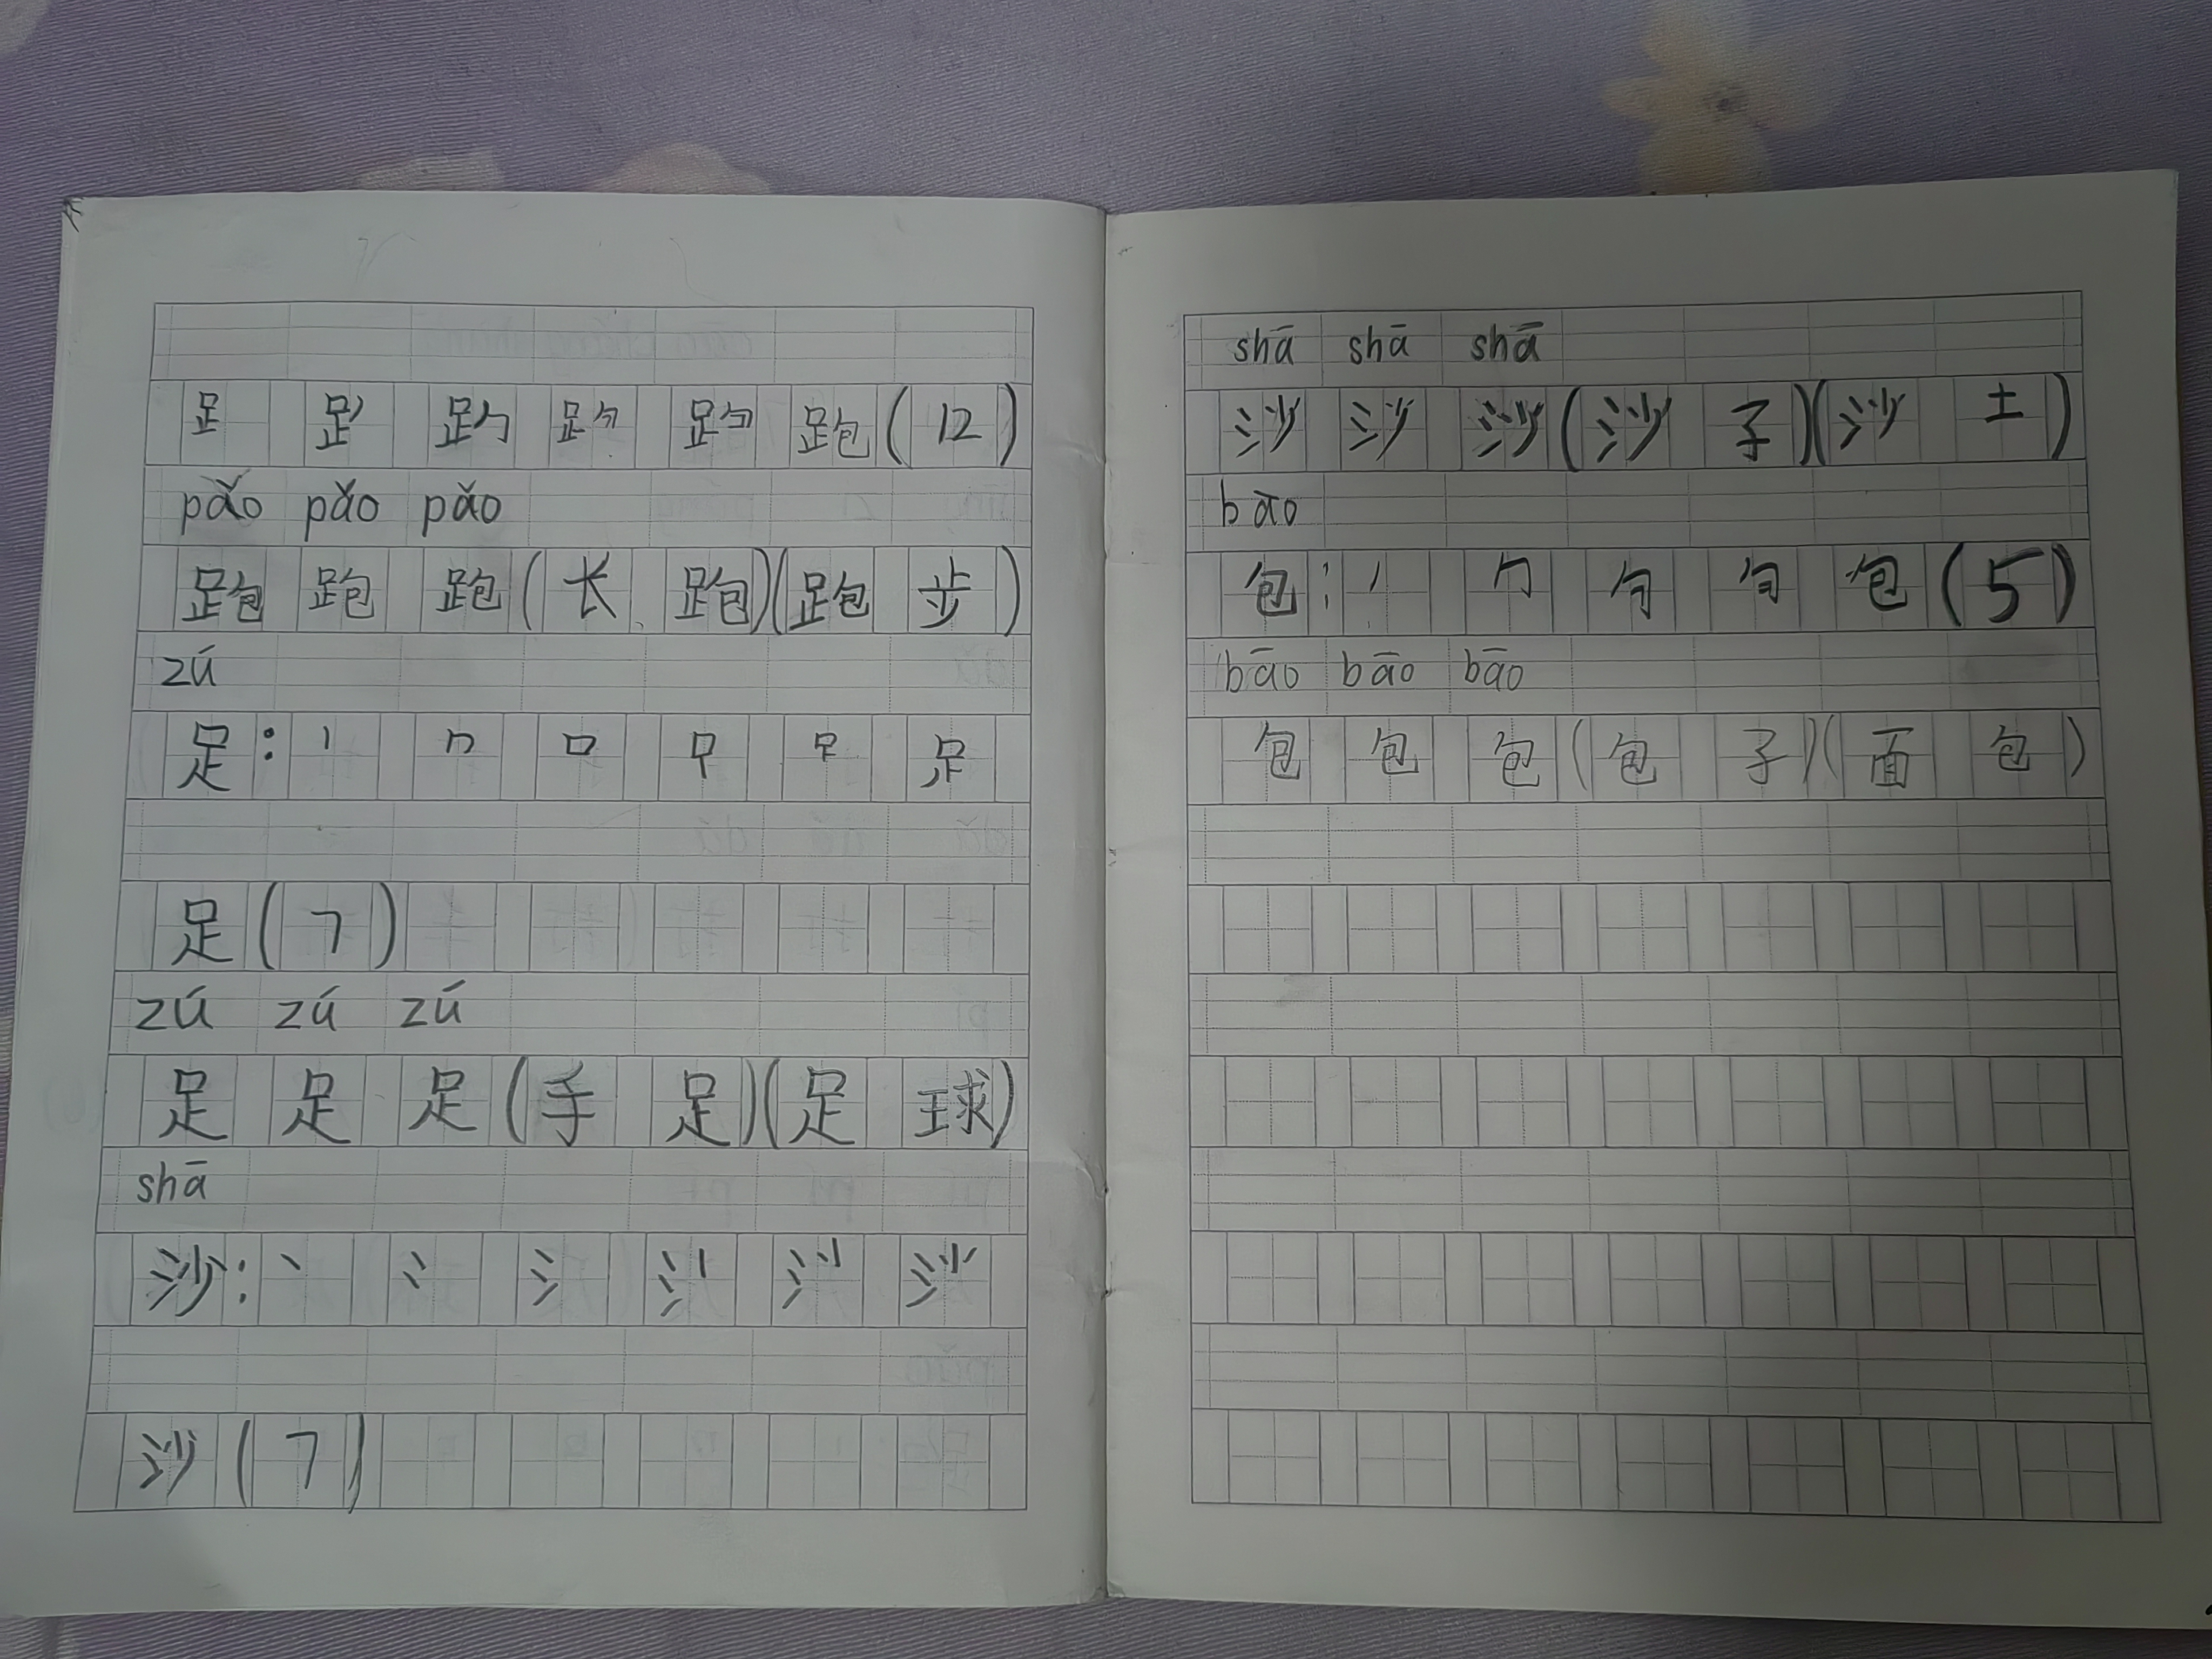 𧾷 跑 (12)
pǎo pǎo pǎo
跑 跑 跑 (长跑)(跑步)
zú
足: 丨 口
足 (7)
zú zú zú
足 足 足 (手足)(足球)
shā
沙: 丶 冫 氵 沙
沙 (7)
shā shā shā
沙 沙 沙 (沙子)(沙土)
bāo
包: 丿 勹 包 (5)
bāo bāo bāo
包 包 包 (包子)(面包)